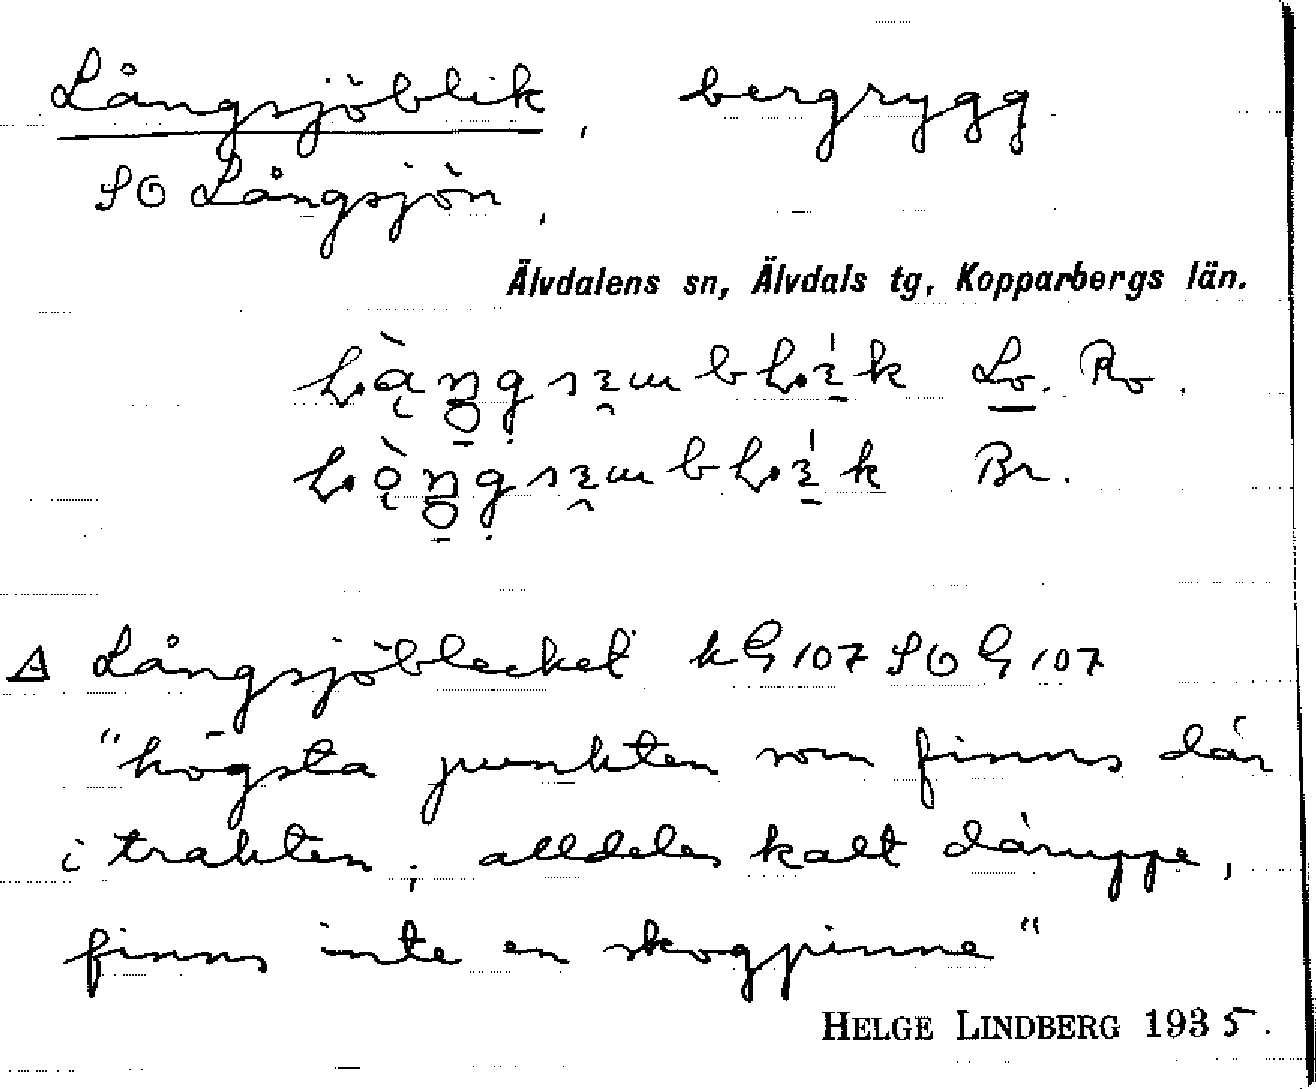 Långsjöblik, bergrygg
SO Långsjön,
Älvdalens sn, Älvdals tg, Kopparbergs län.
Lo. Ro.
Br.
Långsjöblecket k G 107 SO G 107
"högsta punkten som finns där
i trakten; alldeles kalt däruppe,
finns inte en skogpinne"
HELGE LINDBERG 1935.